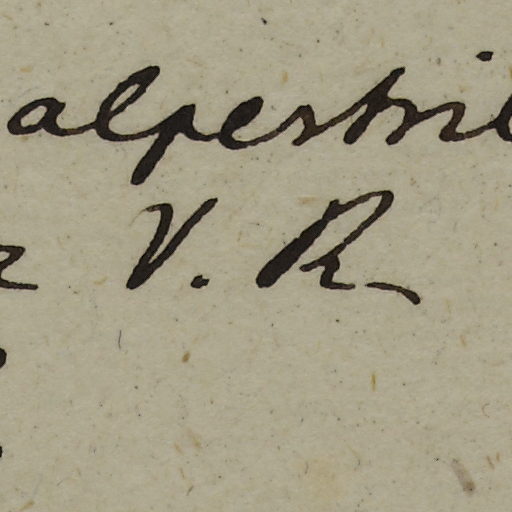 alpestri
V. R